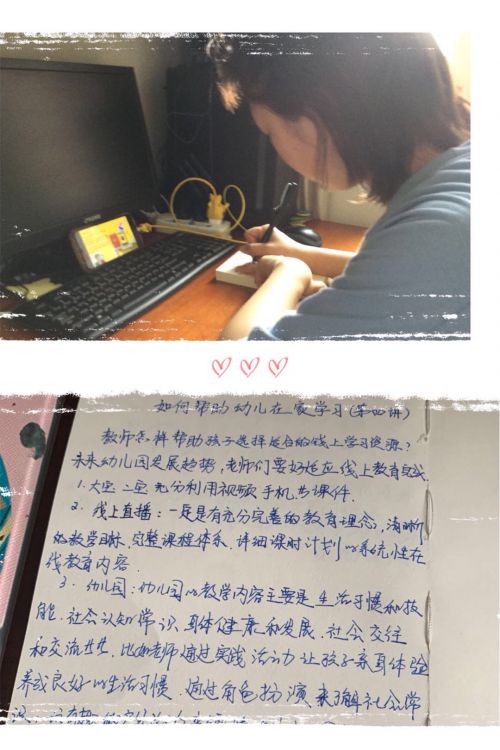 如何帮助幼儿在家学习(第四讲)
教师怎样帮助孩子选择适合的线上学习资源?
未来幼儿园发展趋势,老师们要好适应线上教育
1.大宝二宝充分利用视频手机与课件.
2.线上直播:一定是有充分完善的教育理念,清晰
的教学目标、完整课程体系、详细课时计划以系统性在
线教育内容.
3.幼儿园:幼儿园的教学内容主要是生活习惯和技
能、社会认知常识、身体健康和发展、社会交往
和交流,比如老师通过实践活动力让孩子亲身体验
养成良好的生活习惯、通过角色扮演来了解社会常